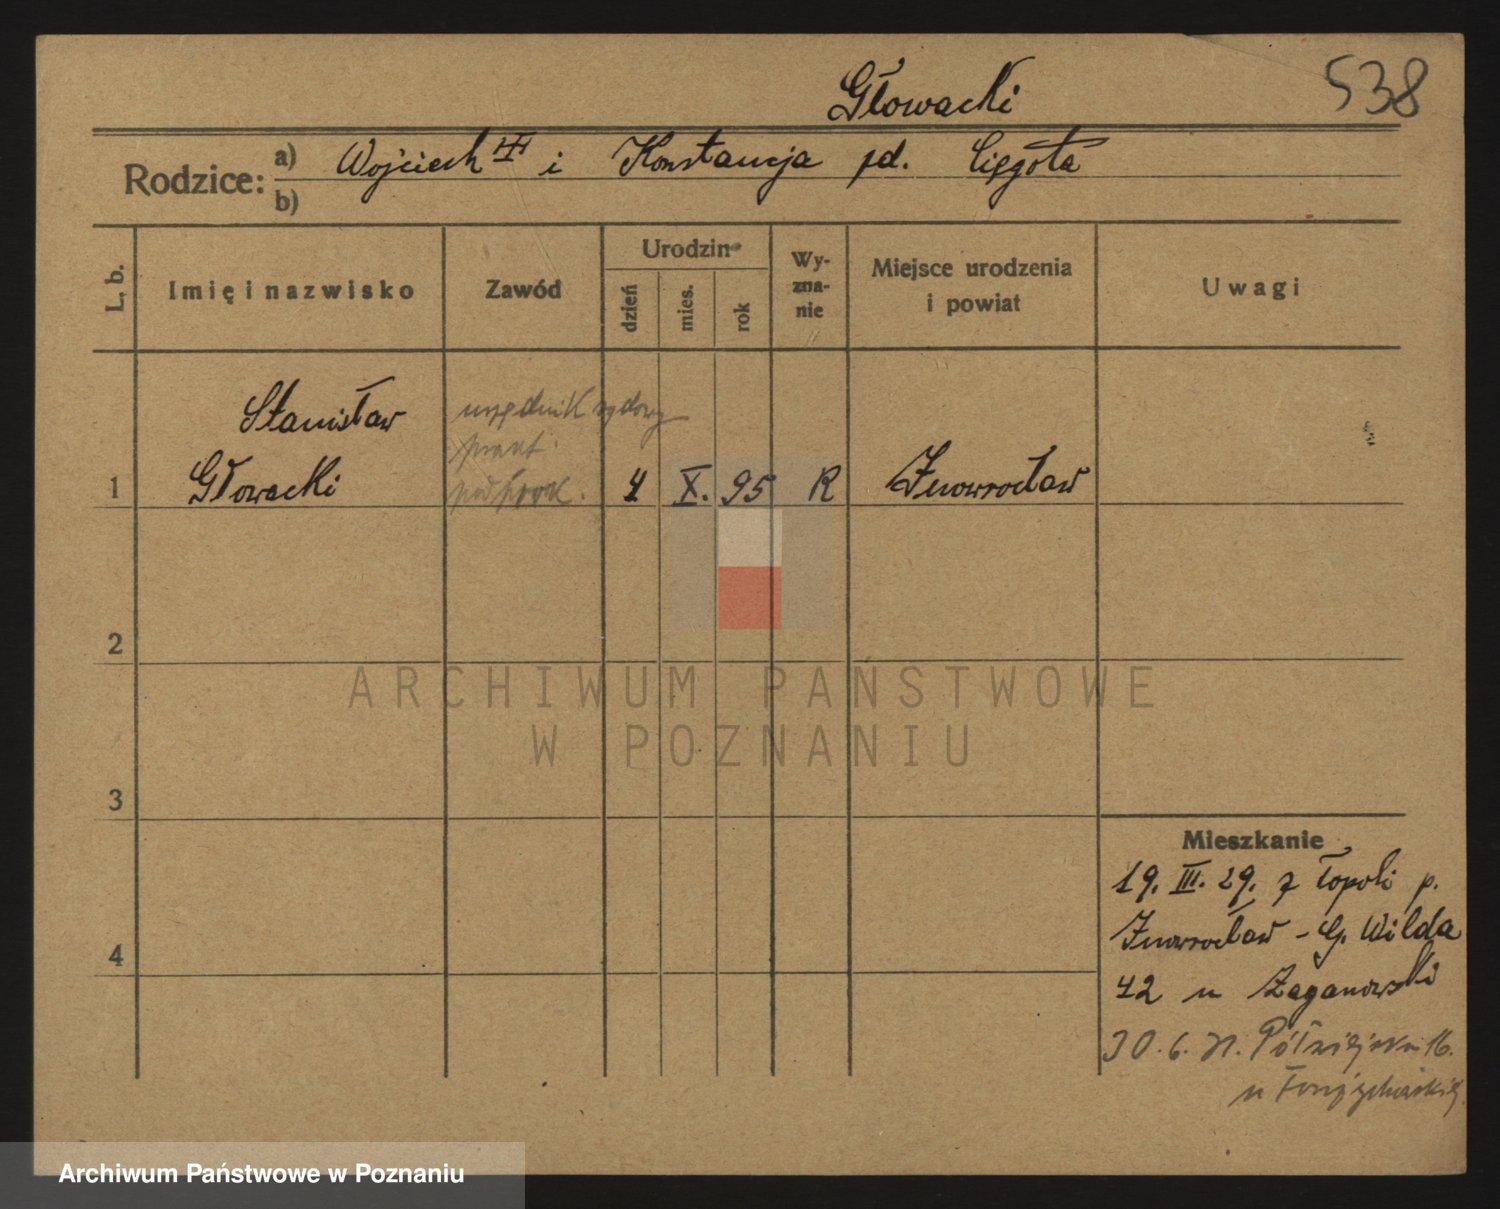 Głowacki
538
Rodzice:
a) Wojciech i Konstancja zd. Cięgota
b)
L. b.
Imię i nazwisko
Zawód
Urodzin
dzień
mies.
rok
Wy-
zna-
nie
Miejsce urodzenia
i powiat
Uwagi
Stanisław
urzędnik sądowy
prakt.
1 Głowacki 4 X. 95 R Inowrocław
2
3
4
Mieszkanie
19. III. 29. z Topoli p.
Inowrocław - G. Wilda
42 u Zaganowski
30. 6. 31. Półwiejska 16.
u
ARCHIWUM PAŃSTWOWE
W POZNANIU
Archiwum Państwowe w Poznaniu